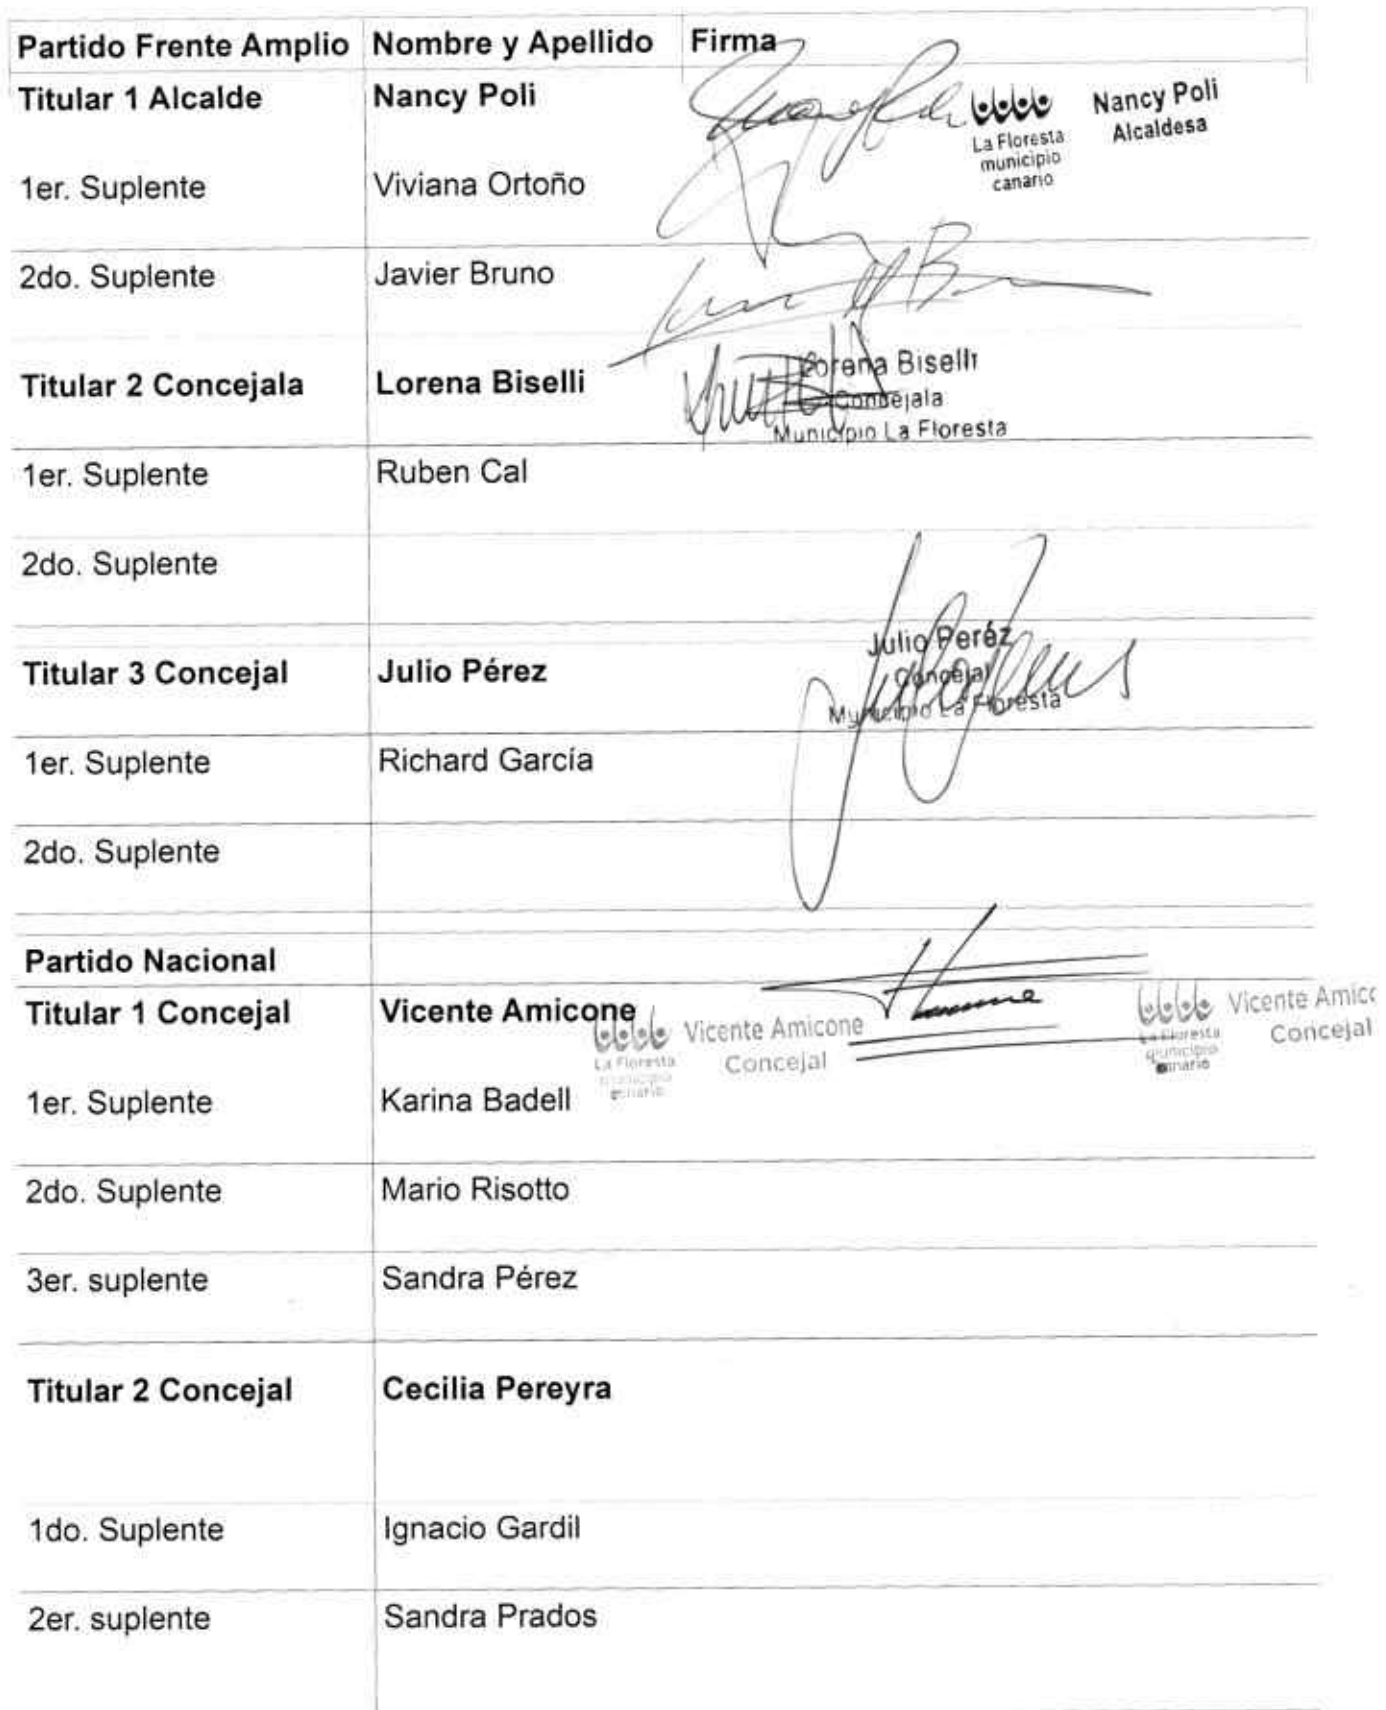 Partido Frente Amplio Nombre y Apellido Firma
Titular 1 Alcalde Nancy Poli
Nancy Poli
Alcaldesa
La Floresta
municipio
canario
1er. Suplente Viviana Ortoño
2do. Suplente Javier Bruno
Titular 2 Concejala Lorena Biselli
Lorena Biselli
Concejala
Municipio La Floresta
1er. Suplente Ruben Cal
2do. Suplente
Titular 3 Concejal Julio Pérez
Julio Peréz
Concejal
Municipio La Floresta
1er. Suplente Richard García
2do. Suplente
Partido Nacional
Titular 1 Concejal Vicente Amicone
Vicente Amicone
Concejal
La Floresta
municipio
canario
Vicente Amico
Concejal
La Floresta
municipio
canario
1er. Suplente Karina Badell
2do. Suplente Mario Risotto
3er. suplente Sandra Pérez
Titular 2 Concejal Cecilia Pereyra
1do. Suplente Ignacio Gardil
2er. suplente Sandra Prados